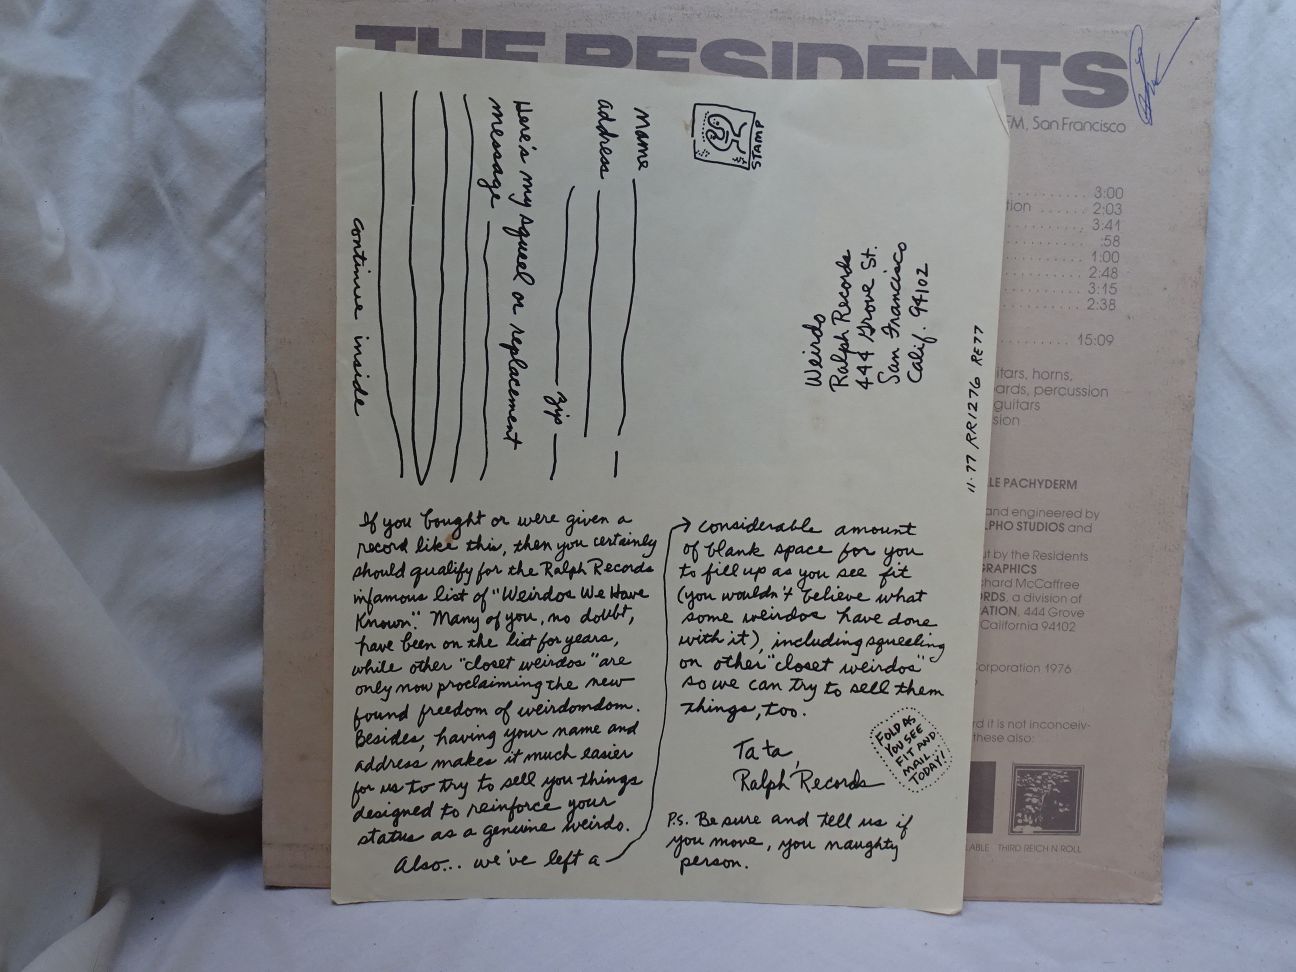 THE RESIDENTS
FM, San Francisco
3:00
tion 2:03
3:41
:58
1:00
2:48
3:15
2:38
15:09
itars, horns,
ards, percussion
guitars
sion
LE PACHYDERM
and engineered by
LPHO STUDIOS and
ut by the Residents
GRAPHICS
chard McCaffree
RDS, a division of
RATION, 444 Grove
California 94102
orporation 1976
rd it is not inconceiv-
these also:
LABLE THIRD REICH N ROLL
STAMP
name
address
zip
Here's my squeel or replacement
message
continue inside
Weirdo
Ralph Records
444 Grove St.
San Francisco
Calif. 94102
11-77 RR1276 RE77
If you bought or were given a
record like this, then you certainly
should qualify for the Ralph Records
infamous list of "Weirdos We Have
Known". Many of you, no doubt,
have been on the list for years,
while other "closet weirdos" are
only now proclaiming the new
found freedom of weirdomdom.
Besides, having your name and
address makes it much easier
for us to try to sell you things
designed to reinforce your
status as a genuine weirdo.
Also... we've left a
considerable amount
of blank space for you
to fill up as you see fit
(you wouldn't believe what
some weirdos have done
with it), including squeeling
on other "closet weirdos"
so we can try to sell them
things, too.
Ta ta,
Ralph Records
FOLD AS
YOU SEE
FIT AND
MAIL
TODAY!
P.S. Be sure and tell us if
you move, you naughty
person.